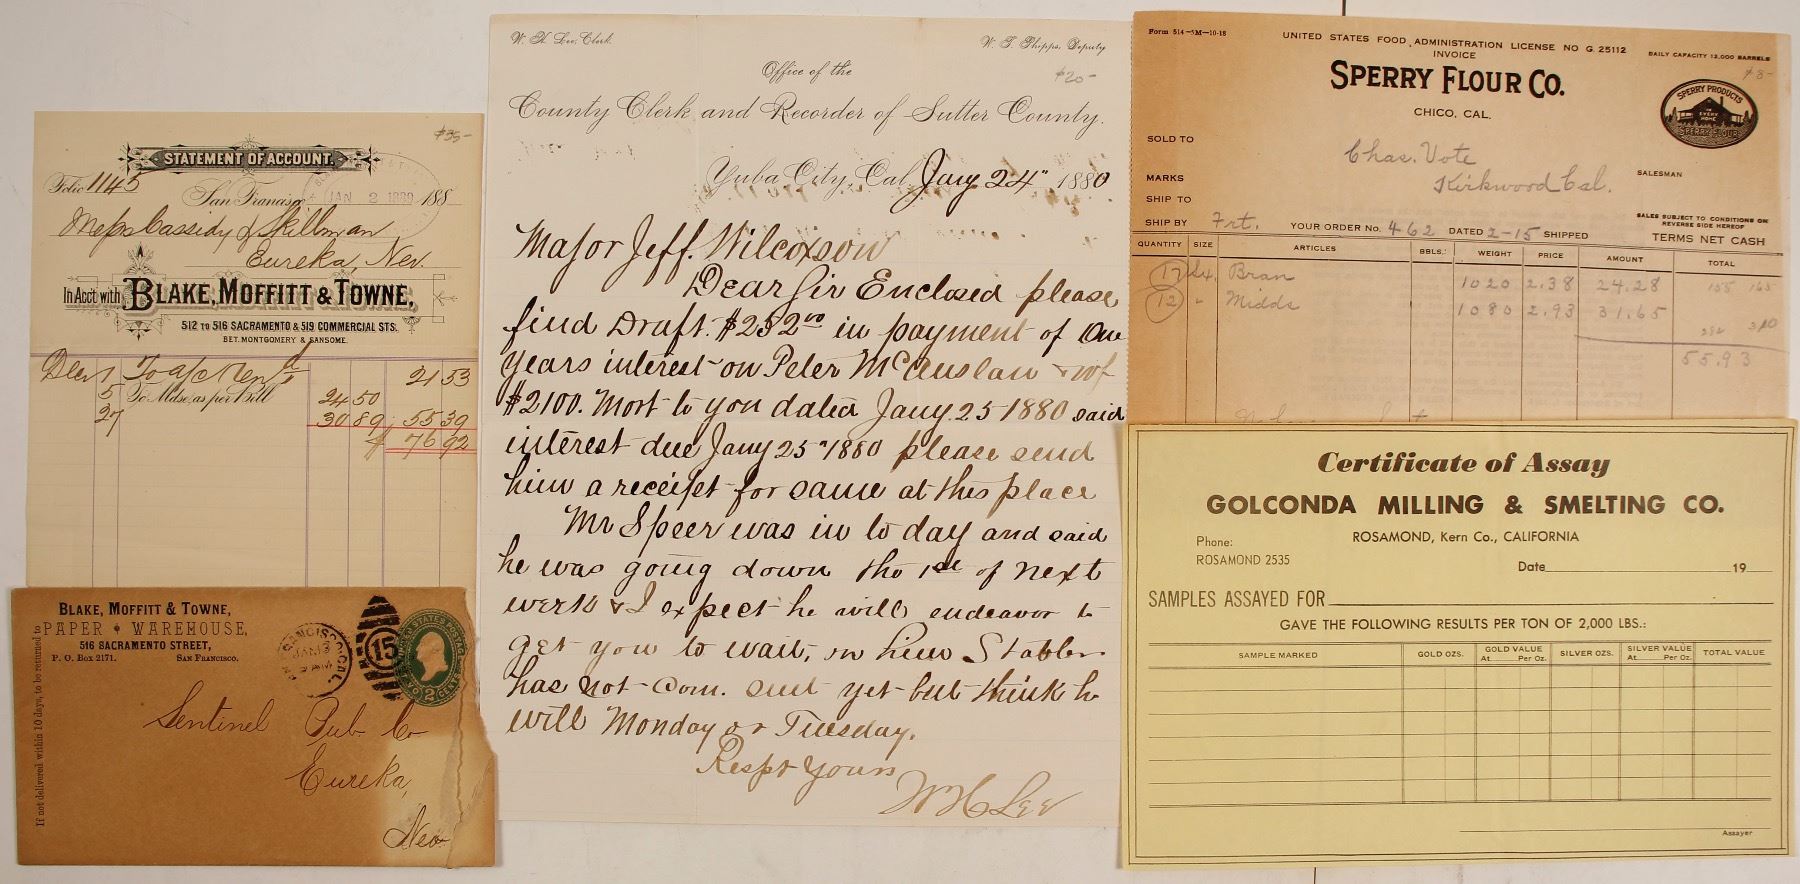 $35-
STATEMENT OF ACCOUNT.
Folio 1145
San Francisco, JAN 2 188
Cassidy & Skillman
Eureka, Nev.
In Acc't with BLAKE, MOFFITT & TOWNE,
512 TO 516 SACRAMENTO & 519 COMMERCIAL STS.
BET. MONTGOMERY & SANSOME.
To a/c Rend 21 53
5 To Mdse. as per Bill 24 50
27 30 89 55 39
$ 76 92
If not delivered within 10 days, to be returned to
BLAKE, MOFFITT & TOWNE,
PAPER WAREHOUSE,
516 SACRAMENTO STREET,
P. O. Box 2171. SAN FRANCISCO.
SAN FRANCISCO CAL. JAN 3 9 AM
15
UNITED STATES POSTAGE
TWO 2 CENTS
Sentinel Pub. Co
Eureka,
Nev
W. H. Lee, Clerk. W. T. Phipps, Deputy
$20-
Office of the
County Clerk and Recorder of Sutter County.
Yuba City, Cal, Jany 24" 1880
Major Jeff. Wilcoxson
Dear Sir Enclosed please
find Draft. $252 00 in payment of One
Years interest on Peter McAuslan & wf
$2100. Mort to you dated Jany. 25 1880 said
interest due Jany 25" 1880 please send
him a receipt for same at this place
Mr Speer was in to day and said
he was going down the 1st of next
week & I expect he will endeavor to
get you to wait, on him Stabler
has not com. out yet but think he
will Monday or Tuesday.
Respt Yours
W H Lee
Form 514-5M-10-18
UNITED STATES FOOD ADMINISTRATION LICENSE NO G 25112
INVOICE
DAILY CAPACITY 12,000 BARRELS
$8-
SPERRY FLOUR CO.
CHICO, CAL.
SPERRY PRODUCTS
IN EVERY HOME
SPERRY FLOUR
SOLD TO Chas. Vote
MARKS Kirkwood Cal. SALESMAN
SHIP TO
SALES SUBJECT TO CONDITIONS ON REVERSE SIDE HEREOF
SHIP BY Frt. YOUR ORDER No. 462 DATED 2-15 SHIPPED TERMS NET CASH
QUANTITY SIZE ARTICLES BBLS. WEIGHT PRICE AMOUNT TOTAL
12 Bran 1020 2.38 24.28 155 165
12 " Midds 1080 2.93 31.65
55.93
Certificate of Assay
GOLCONDA MILLING & SMELTING CO.
ROSAMOND, Kern Co., CALIFORNIA
Phone:
ROSAMOND 2535
Date 19
SAMPLES ASSAYED FOR
GAVE THE FOLLOWING RESULTS PER TON OF 2,000 LBS.:
SAMPLE MARKED GOLD OZS. GOLD VALUE At Per Oz. SILVER OZS. SILVER VALUE At Per Oz. TOTAL VALUE
Assayer